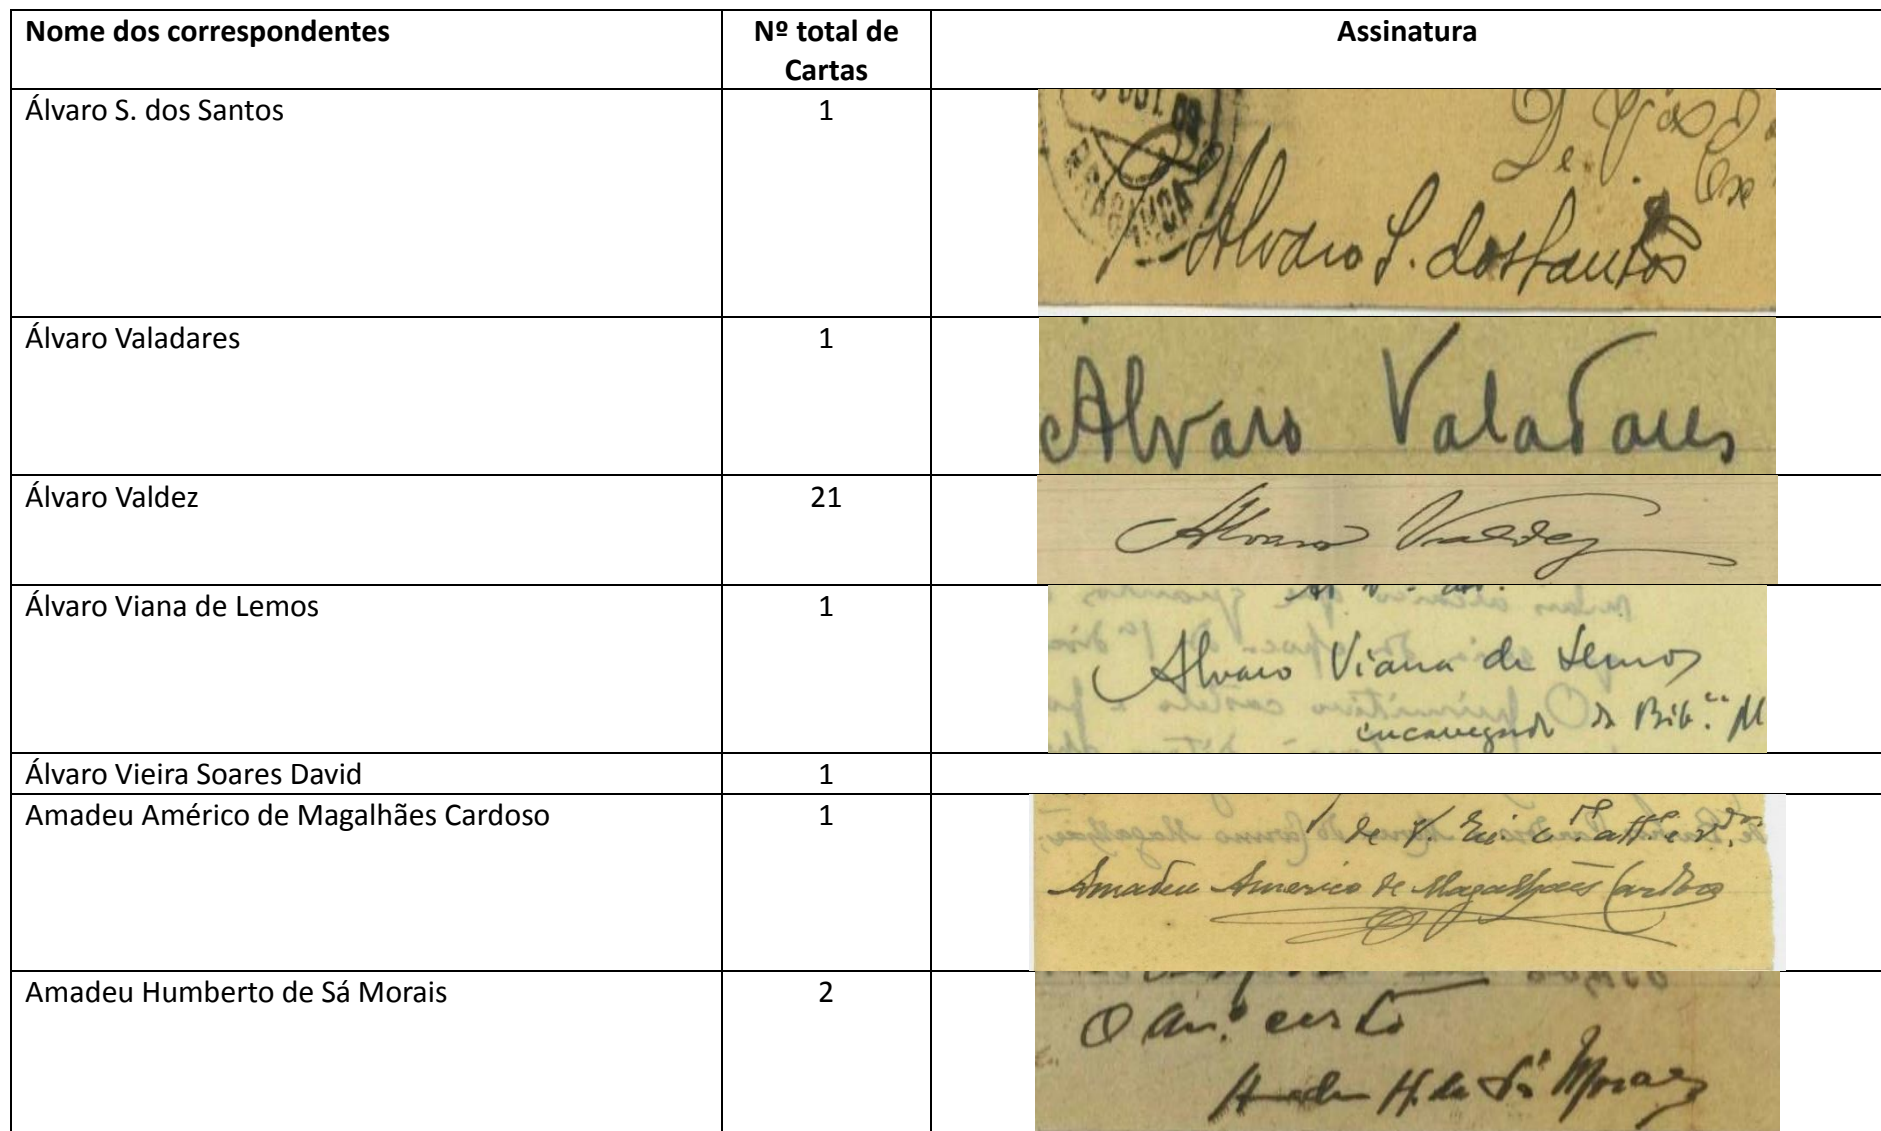 Nome dos correspondentes Nº total de Cartas Assinatura
Álvaro S. dos Santos 1
BRAGANÇA
Alvaro S. dos Santos
Álvaro Valadares 1
Alvaro Valadares
Álvaro Valdez 21
Alvaro Valdez
Álvaro Viana de Lemos 1
Alvaro Viana de Lemos
encarregado da Bib.
Álvaro Vieira Soares David 1
Amadeu Américo de Magalhães Cardoso 1
de V. Ex.
Amadeu Americo de Magalhães Cardoso
Amadeu Humberto de Sá Morais 2
O am.º certo
Amadeu H. de Sá Moraes